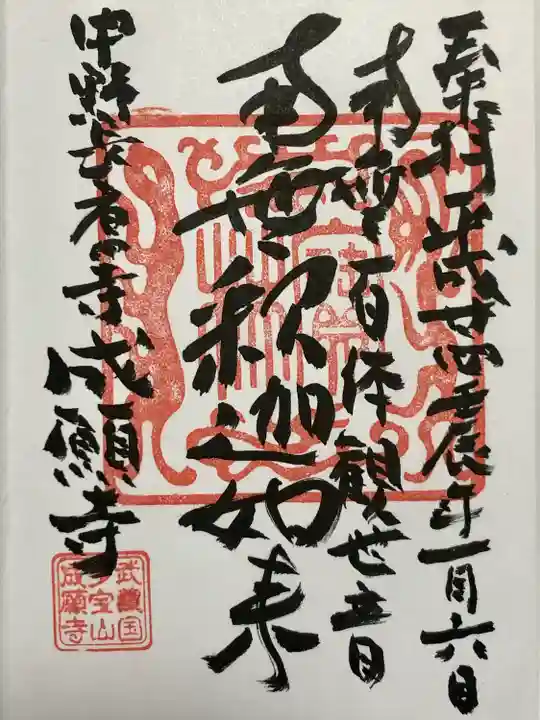 奉拝 平成廿四壬辰年一月六日
百体観世音
南無釈迦如来
中野長者の寺 成願寺
武蔵国
多宝山
成願寺